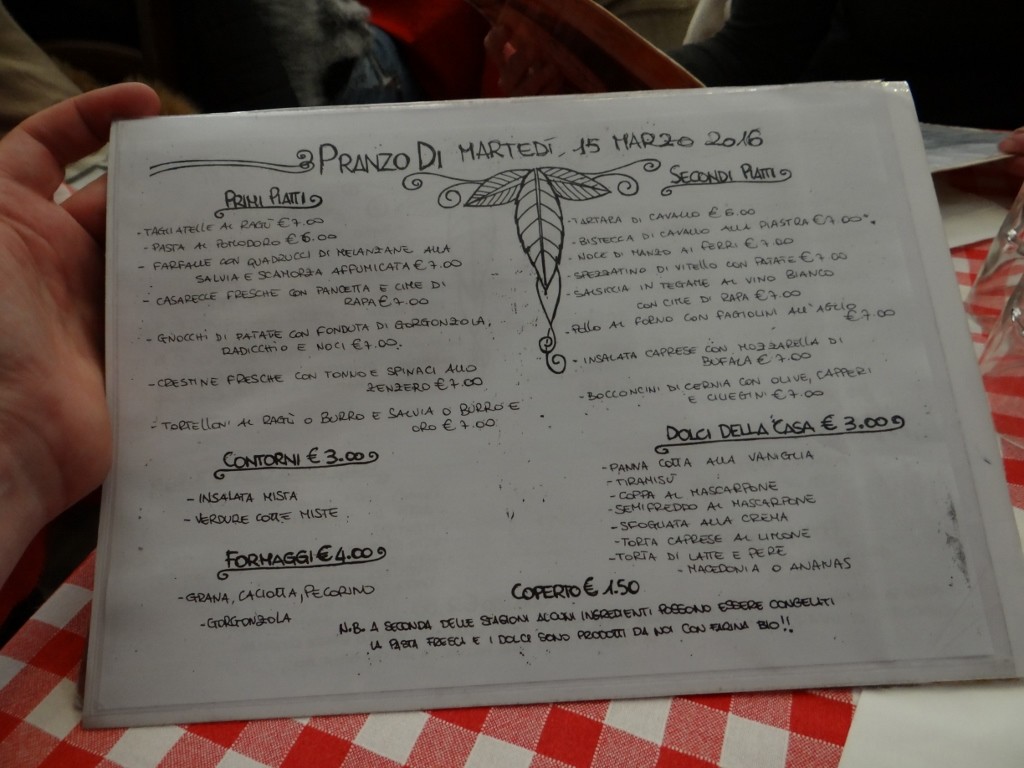 PRANZO DI MARTEDÌ, 15 MARZO 2016
PRIMI PIATTI
- TAGLIATELLE AL RAGÙ € 7.00
- PASTA AL POMODORO € 6.00
- FARFALLE CON QUADRUCCI DI MELANZANE ALLA
SALVIA E SCAMORZA AFFUMICATA € 7.00
- CASARECCE FRESCHE CON PANCETTA E CIME DI
RAPA € 7.00
- GNOCCHI DI PATATE CON FONDUTA DI GORGONZOLA,
RADICCHIO E NOCI € 7.00.
- CRESTINE FRESCHE CON TONNO E SPINACI ALLO
ZENZERO € 7.00
- TORTELLONI AL RAGÙ O BURRO E SALVIA O BURRO E
ORO € 7.00
CONTORNI € 3.00
- INSALATA MISTA
- VERDURE COTTE MISTE
FORMAGGI € 4.00
- GRANA, CACIOTTA, PECORINO
- GORGONZOLA
SECONDI PIATTI
- TARTARA DI CAVALLO € 6.00
- BISTECCA DI CAVALLO ALLA PIASTRA € 7.00
- NOCE DI MANZO AI FERRI € 7.00
- SPEZZATINO DI VITELLO CON PATATE € 7.00
- SALSICCIA IN TEGAME AL VINO BIANCO
CON CIME DI RAPA € 7.00
- POLLO AL FORNO CON FAGIOLINI ALL'AGLIO
€ 7.00
- INSALATA CAPRESE CON MOZZARELLA DI
BUFALA € 7.00
- BOCCONCINI DI CERNIA CON OLIVE, CAPPERI
E CILIEGINI € 7.00
DOLCI DELLA CASA € 3.00
- PANNA COTTA ALLA VANIGLIA
- TIRAMISÙ
- COPPA AL MASCARPONE
- SEMIFREDDO AL MASCARPONE
- SFOGLIATA ALLA CREMA
- TORTA CAPRESE AL LIMONE
- TORTA DI LATTE E PERE
- MACEDONIA O ANANAS
COPERTO € 1.50
N.B. A SECONDA DELLE STAGIONI ALCUNI INGREDIENTI POSSONO ESSERE CONGELATI
LA PASTA FRESCA E I DOLCI SONO PRODOTTI DA NOI CON FARINA BIO!!